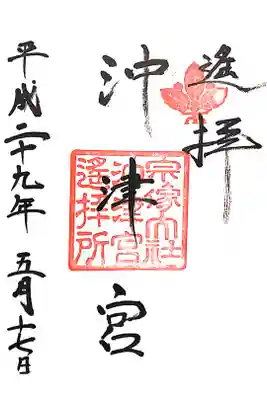 遙拝
沖津宮
宗像大社
沖津宮
遙拝所
平成二十九年 五月十七日